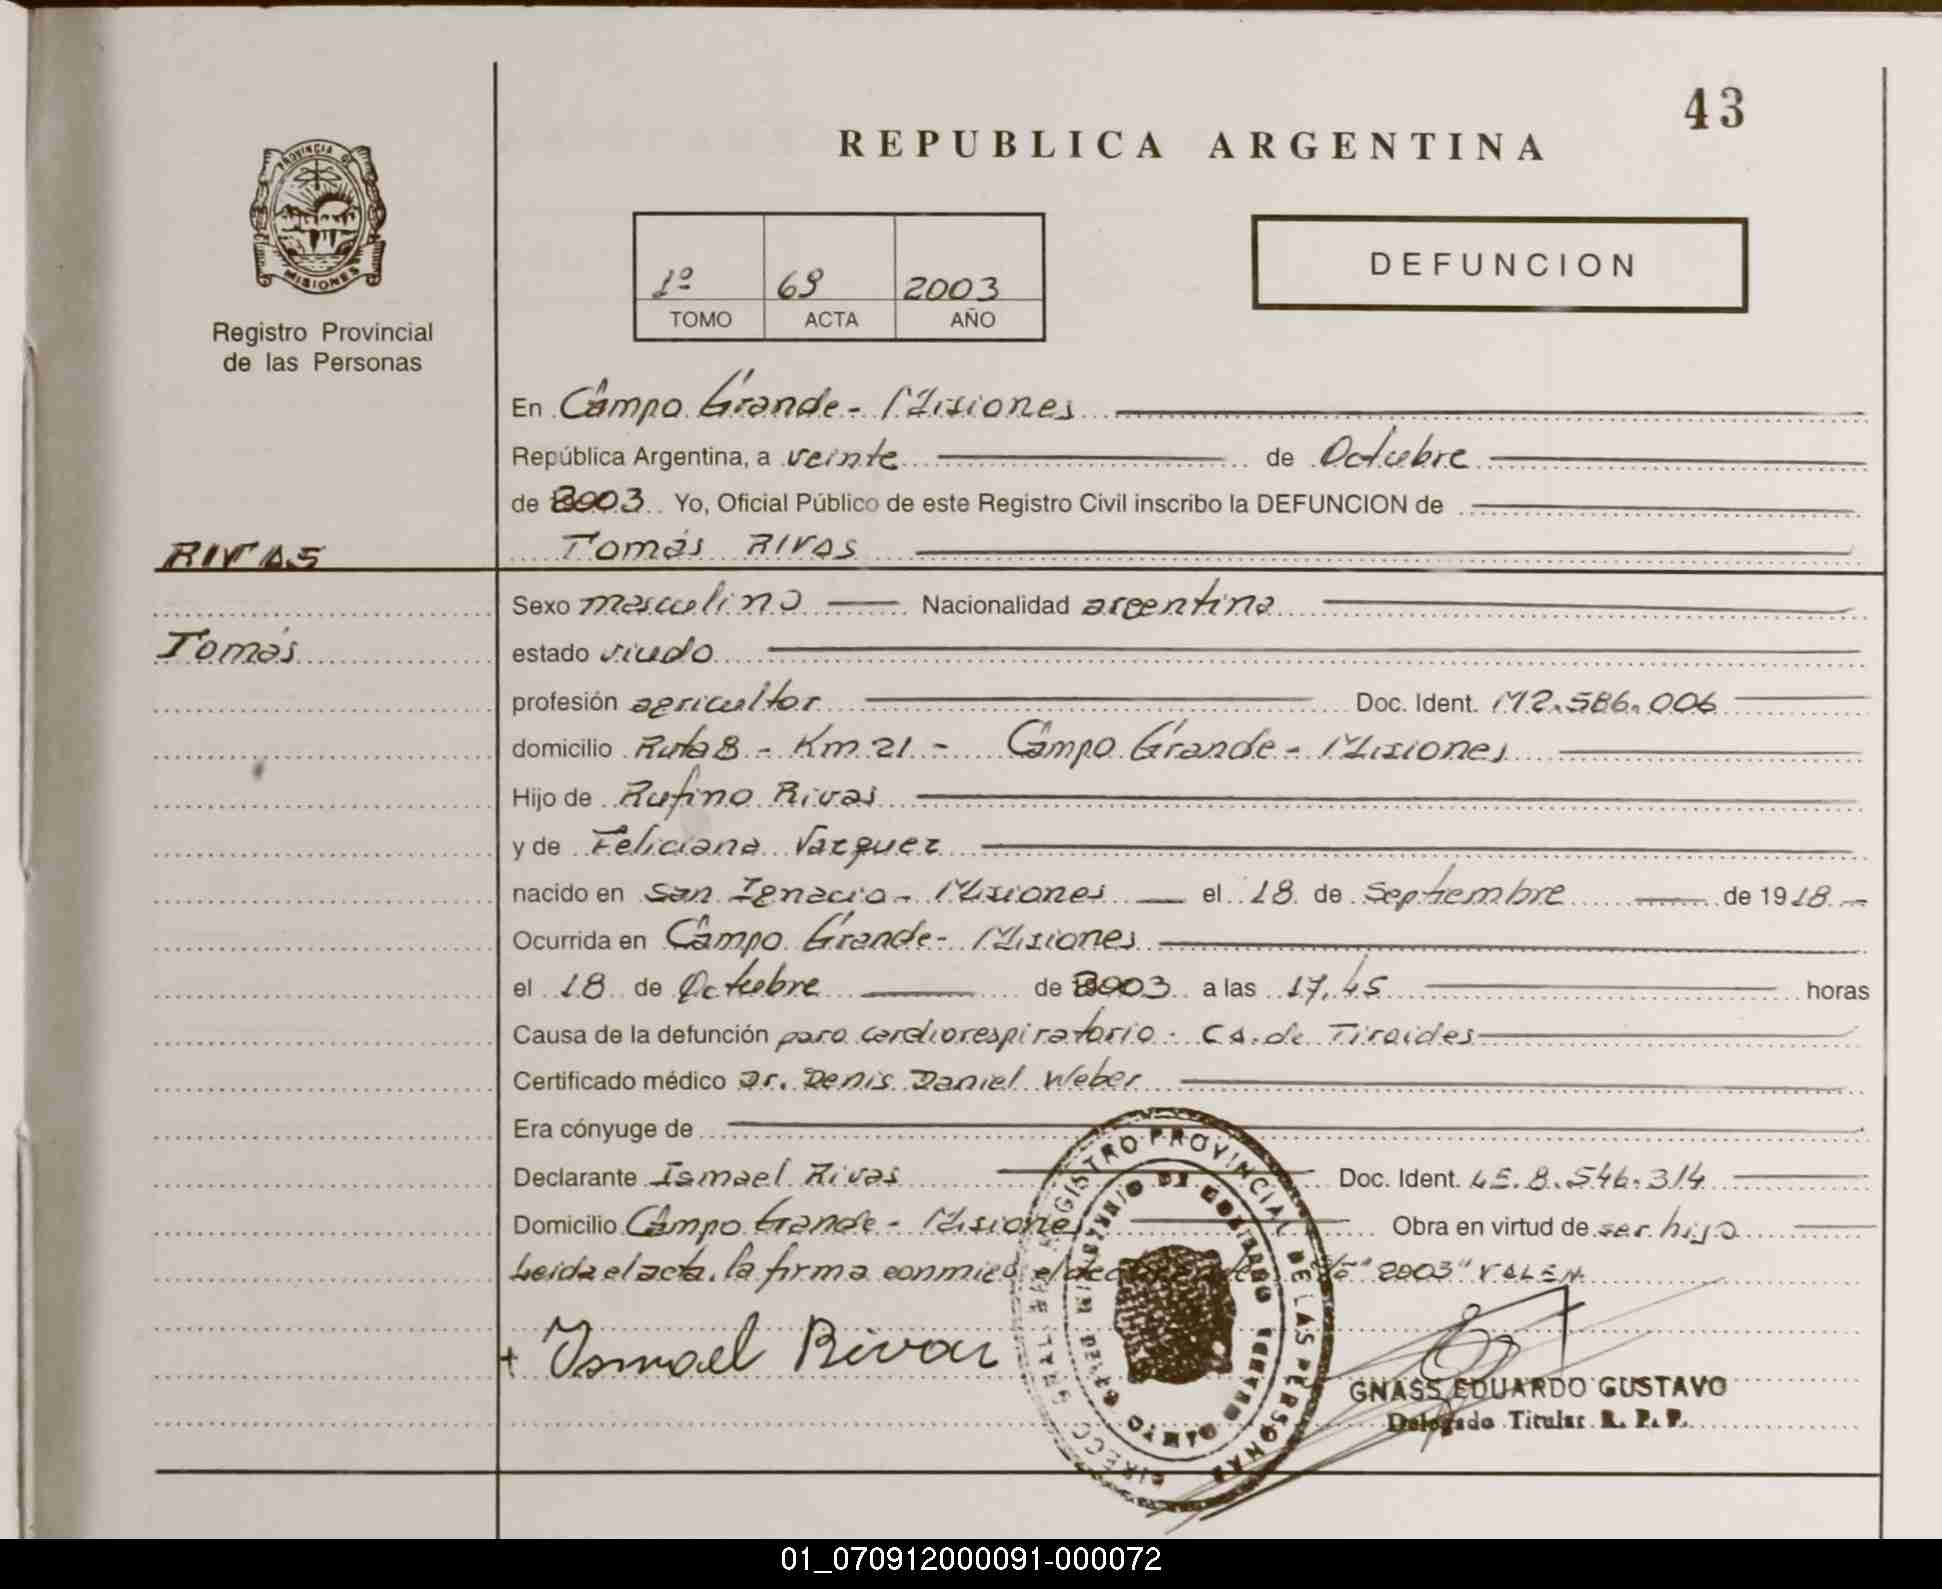 43
REPUBLICA ARGENTINA
PROVINCIA DE
MISIONES
Registro Provincial
de las Personas
1º 69 2003
TOMO ACTA AÑO
DEFUNCION
En Campo Grande - Misiones
República Argentina, a veinte de Octubre
de 2003 Yo, Oficial Público de este Registro Civil inscribo la DEFUNCION de
RIVAS Tomás RIVAS
Sexo masculino Nacionalidad argentina
Tomás estado viudo
profesión agricultor Doc. Ident. M2.586.006
domicilio Ruta 8 - Km 21 - Campo Grande - Misiones
Hijo de Rufino Rivas
y de Feliciana Vazquez
nacido en San Ignacio - Misiones el 18 de Septiembre de 1918
Ocurrida en Campo Grande - Misiones
el 18 de Octubre de 2003 a las 17,45 horas
Causa de la defunción paro cardiorespiratorio - Ca. de Tiroides
Certificado médico Dr. Denis Daniel Weber
Era cónyuge de
Declarante Ismael Rivas Doc. Ident. LE.8.546.314
Domicilio Campo Grande - Misiones Obra en virtud de ser hijo
Leida el acta, la firma conmigo el "2003" VALEN.
REGISTRO PROVINCIAL DE LAS PERSONAS
MINISTERIO DE GOBIERNO
+ Ismael Rivas
GNASS EDUARDO GUSTAVO
Delegado Titular R. P. P.
01_070912000091-000072